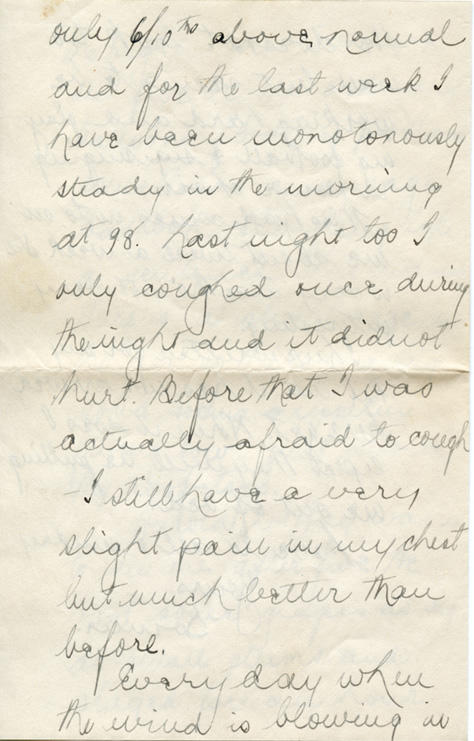 only 6/10ths above normal
and for the last week I
have been monotonously
steady in the morning
at 98. Last night too I
only coughed once during
the night and it did not
hurt. Before that I was
actually afraid to cough
- I still have a very
slight pain in my chest
but much better than
before.
Every day when
the wind is blowing in